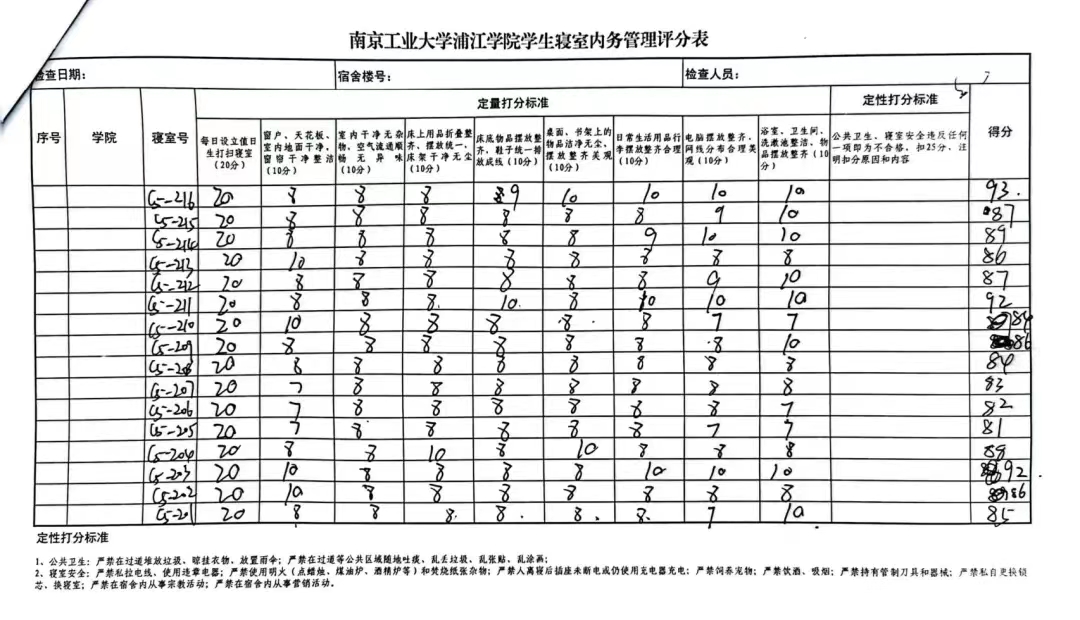 南京工业大学浦江学院学生寝室内务管理评分表
检查日期： 宿舍楼号： 检查人员：
序号 学院 寝室号 定量打分标准 定性打分标准 得分
每日设立值日生打扫寝室（20分） 窗户、天花板、室内地面干净、窗帘干净整洁（10分） 室内干净无杂物、空气流通顺畅无异味（10分） 床上用品折叠整齐、摆放统一、床架干净无尘（10分） 床底物品摆放整齐，鞋子统一排放成线（10分） 桌面、书架上的物品洁净无尘、摆放整齐美观（10分） 日常生活用品行李摆放整齐合理（10分） 电脑摆放整齐、网线分布合理美观（10分） 浴室、卫生间、洗漱池整洁、物品摆放整齐（10分） 公共卫生、寝室安全违反任何一项即为不合格，扣25分，注明扣分原因和内容
C5-216 20 8 8 8 9 10 10 10 10 93.
C5-215 20 8 8 8 8 8 8 9 10 87
C5-214 20 8 8 8 8 8 9 10 10 89
C5-213 20 10 8 8 8 8 8 8 8 86
C5-212 20 8 8 8 8 8 8 9 10 87
C5-211 20 8 8 8. 10. 8 10 10 10 92
C5-210 20 10 8 8 8 8 8 7 7 84
C5-209 20 8 8 8 8 8 8 8 10 86
C5-208 20 8 8 8 8 8 8 8 8 84
C5-207 20 7 8 8 8 8 8 8 8 83
C5-206 20 7 8 8 8 8 8 8 7 82
C5-205 20 7 8 8 8 8 8 7 7 81
C5-204 20 8 8 10 8 10 8 8 8
C5-203 20 10 8 8 8 8 10 10 10 92
C5-202 20 10 8 8 8 8 8 8 8 86
C5-201 20 8 8 8. 8 8. 8. 7 10 85
定性打分标准
1、公共卫生：严禁在过道堆放垃圾、晾挂衣物、放置雨伞；严禁在过道等公共区域随地吐痰、乱丢垃圾、乱张贴、乱涂画；
2、寝室安全：严禁私拉电线、使用违章电器；严禁使用明火（点蜡烛、煤油炉、酒精炉等）和焚烧纸张杂物；严禁人离寝后插座未断电或仍使用充电器充电；严禁饲养宠物；严禁饮酒、吸烟；严禁持有管制刀具和器械；严禁私自更换锁
芯、换寝室；严禁在宿舍内从事宗教活动；严禁在宿舍内从事营销活动。